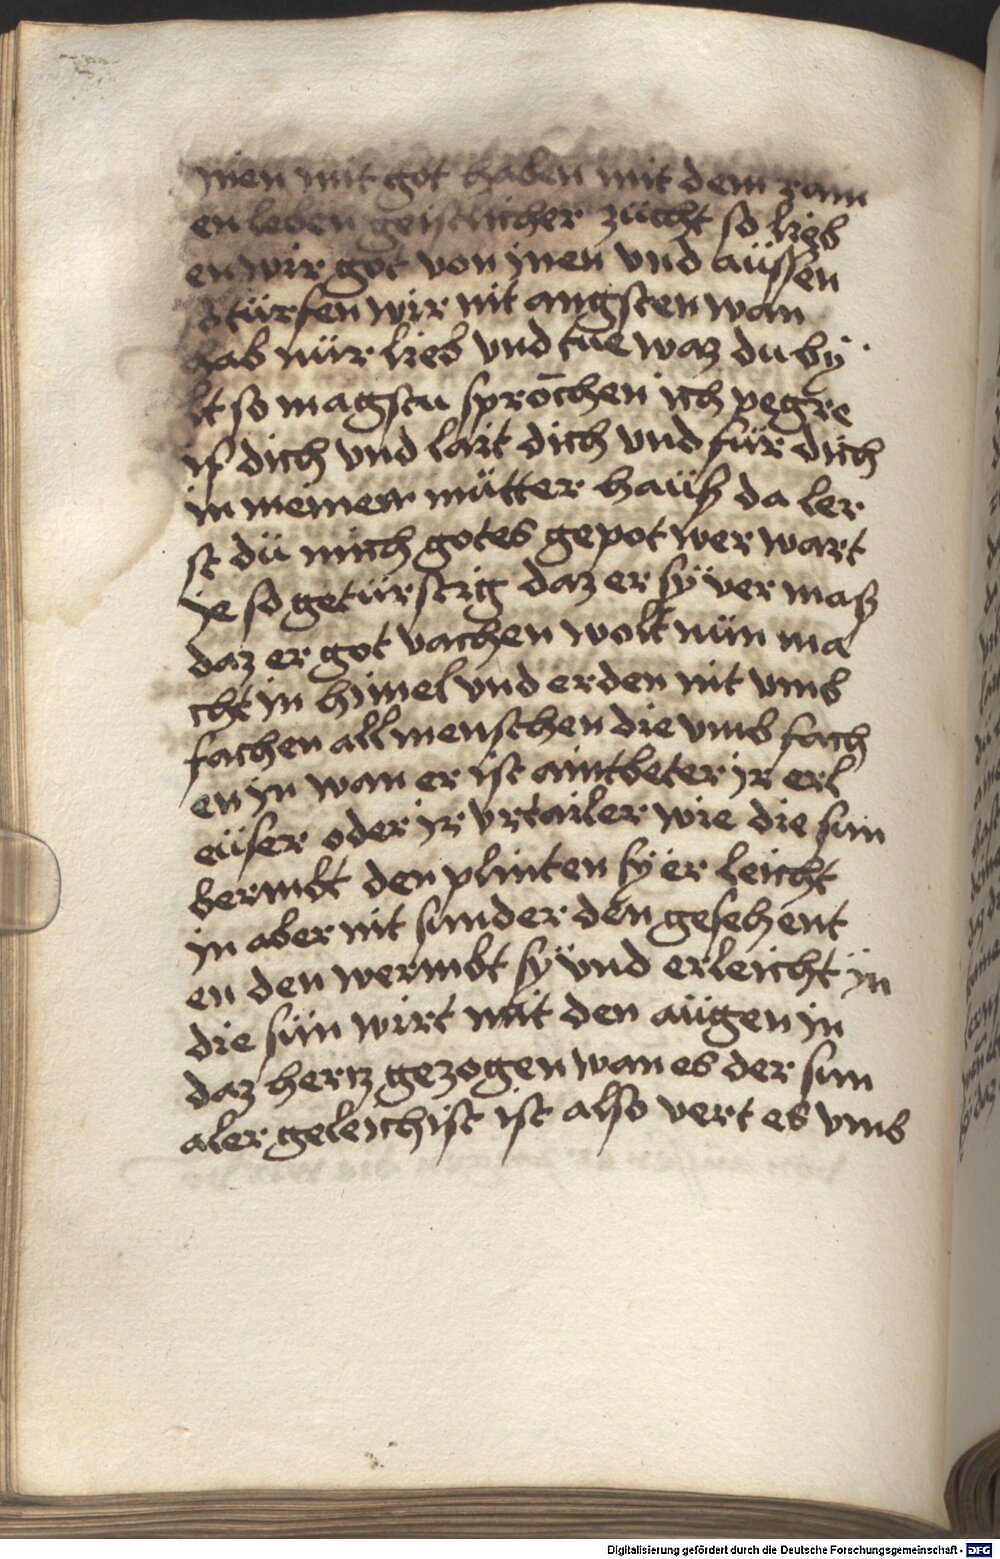 men mit got haben mit dem rain
en leben geistlicher zücht so lieb
en wir got von jnen vnd aüssen
so türfen wir nit angsten wan
hab nür lieb vnd tüe waz du by
lt so magstu sprōchen ich pegre
if dich vnd lait dich vnd für dich
in meiner mütter haüß da ler
st dü mich gotes gepot wer wart
ye so getürstig daz er sÿ ver maß
daz er got vachen wolt nün ma
cht in himel vnd erden nit vmb
fachen all menschen die vmb fach
en in wan er ist aintbeter jr erl
eüser oder jr vrtailer wie die sun
bermbt den plinten sÿ er leicht
jn aber nit sunder den gesehent
en den wermbt sÿ vnd erleicht jn
die sün wirt mit den aügen in
daz hertz gezogen wan es der sun
aler geleichist ist also vert es vmb
Digitalisierung gefördert durch die Deutsche Forschungsgemeinschaft - DFG